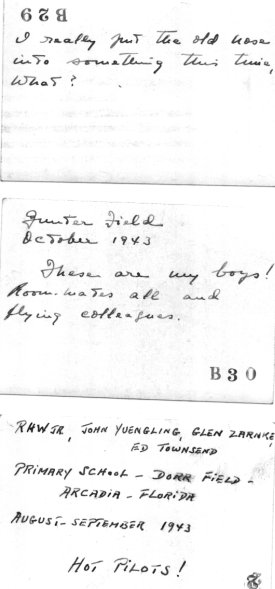 B29
I really put the old nose
into something this time,
What?
Gunter Field
October 1943
These are my boys!
Room-mates all and
flying colleagues.
B30
RHW JR, JOHN YUENGLING, GLEN ZARNKE,
ED TOWNSEND
PRIMARY SCHOOL - DORR FIELD -
ARCADIA - FLORIDA
AUGUST - SEPTEMBER 1943
HOT PILOTS!